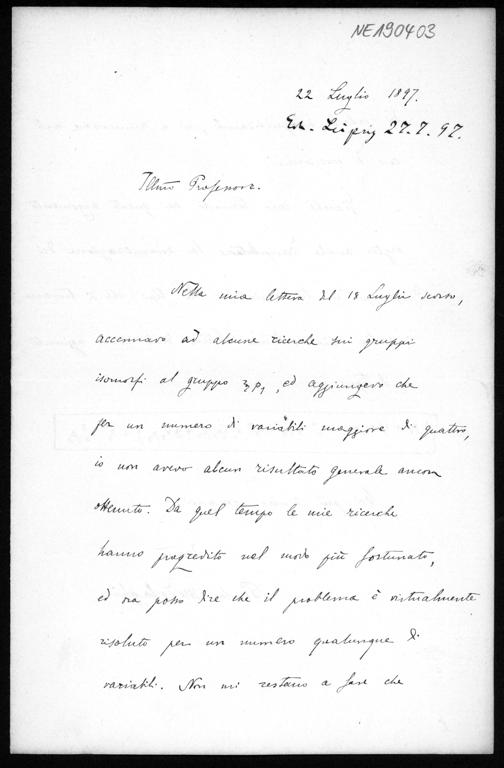 NE190403
22 Luglio 1897.
Erh. Leipzig 27.7.97.
Illmo Professore.
Nella mia lettera del 18 Luglio scorso,
accennavo ad alcune ricerche sui gruppi
isomorfi al gruppo , ed aggiungevo che
per un numero di variabili maggiore di quattro,
io non avevo alcun risultato generale ancora
ottenuto. Da quel tempo le mie ricerche
hanno progredito nel modo più fortunato,
ed ora posso dire che il problema è virtualmente
risoluto per un numero qualunque di
variabili. Non mi restano a fare che